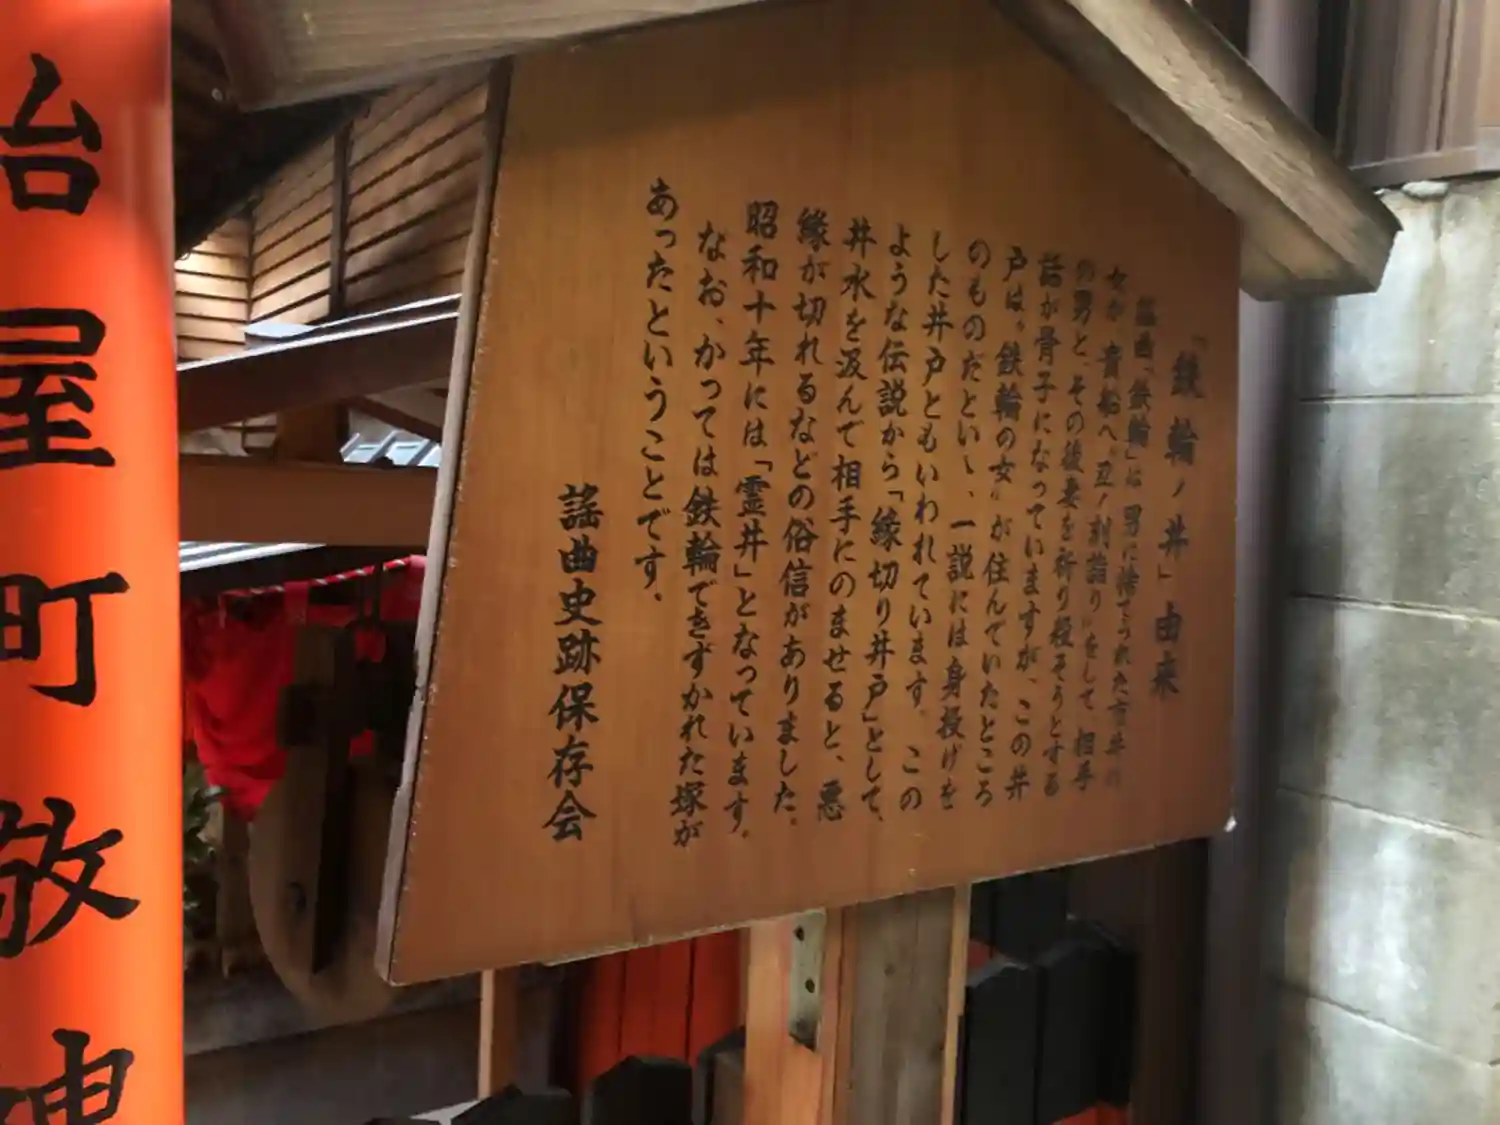 「鉄輪ノ井」由来
謡曲「鉄輪」は男に捨てられた市井の
女が〝貴船へ丑ノ刻詣り〟をして、相手
の男と、その後妻を祈り殺そうとする
話が骨子になっていますが、この井
戸は〝鉄輪の女〟が住んでいたところ
のものだといゝ、一説には身投げを
した井戸ともいわれています。この
ような伝説から「縁切り井戸」として、
井水を汲んで相手にのませると、悪
縁が切れるなどの俗信がありました。
昭和十年には「霊井」となっています。
なお、かつては鉄輪できずかれた塚が
あったということです。
謡曲史跡保存会
冶屋町敬神